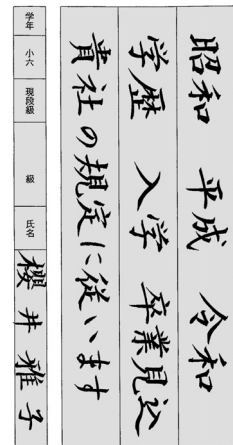 昭和 平成 令和
学歴 入学 卒業見込
貴社の規定に従います
学年 小六 現段級 級 氏名 櫻井雅子